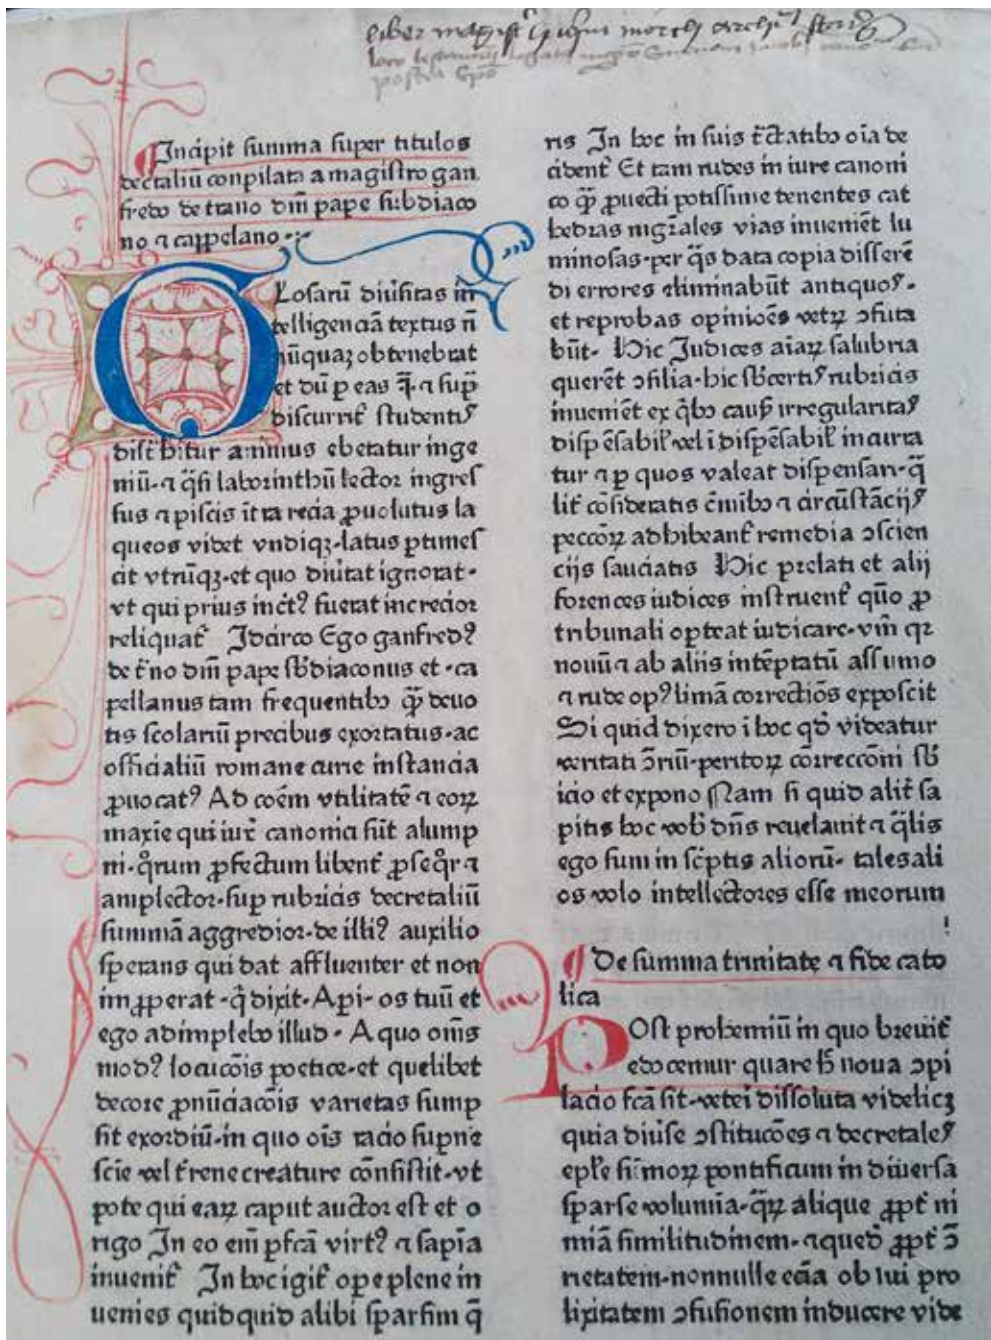 liber magistri
Incipit summa super titulos
decretaliū conpilata a magistro gan
fredo de trano dnī pape subdiaco
no ⁊ cappelano
Glosarū diūsitas in
telligenciā textus nō
nūquaꝫ obtenebrat
et dū p eas q̄ ⁊ sup̄
discurrit᷑ studentis
dist᷑bitur animus ebetatur inge
niū· ⁊ q̄si laborinthū lector ingres
sus ⁊ piscis īt᷑ra recia ꝓuolutus la
queos videt vndiqꝫ·latus ptimes
cit vtrūqꝫ·et quo diūtat ignorat·
vt qui prius incꝰt fuerat increcior
reliquat᷑ Idcirco Ego ganfredꝰ
de t᷑no dnī pape sb̄diaconus et ·ca
pellanus tam frequentibꝰ q̄ȝ deuo
tis scolariū precibus exortatus·ac
officialiū romane curie instancia
ꝓuocatꝰ Ad coēm vtilitatē ⁊ eoꝝ
maxīe qui iur᷑ canonica sūt alump
ni·qͦrum ꝓfectum libent᷑ ꝓseqͦr ⁊
amplector·sup rubricis decretaliū
summā aggredior·de illiꝰ auxilio
sperans qui dat affluenter et non
imꝓperat ·q̄ dixit· Api· os tuū et
ego adimplebo illud· A quo om̄s
modꝰ locucōis poetice·et quelibet
decore ꝓnūciacōis varietas sump
sit exordiū·in quo oīs racio supne
scīe vel t᷑rene creature cōnsistit·vt
pote qui eaꝝ caput auctor est et o
rigo In eo em̄ pfcā virtꝰ ⁊ sapīa
inuenit᷑ In hoc igit᷑ ope plene in
uenies quidquid alibi sparsim q̄
ris In hoc in suis t᷑ctatibꝰ oīa de
cident᷑ Et tam rudes in iure canoni
co q̄ȝ ꝓuecti potissime tenentes cat
hedras mgr̄ales vias inueniēt lu
minosas·per q̄s data copia disserē
di errores eliminabūt antiquos·
et reprobas opiniōēs vetꝝ ꝯfuta
būt· Hic Iudices aīaꝝ salubria
querēt ꝯsilia·hic sb̄certis rubricis
inueniēt ex q̄bꝰ caus̄ irregularitas
dispēsabil᷑ vel ī dispēsabil᷑ incurra
tur ⁊ p quos valeat dispensari·q̄
lit᷑ cōsideratis c᷑mībꝰ ⁊ circūstācijs
peccōꝝ adhibeant᷑ remedia ꝯscien
cijs sauciatis Hic prelati et alij
forences iudices instruent᷑ qūo ꝓ
tribunali opteat iudicare·vīn qꝛ
nouū ⁊ ab aliis intēptatū assumo
⁊ rude opꝰ limā correctiōs exposcit
Si quid dixero ī hoc qd̄ videatur
veritati ꝯriū·peritoꝝ cōrreccōni sb̄
icio et expono Nam si quid alit᷑ sa
pitis hoc vob̄ dn̄s reuelauit ⁊ q̄lis
ego sum in sc᷑ptis aliorū· tales ali
os volo intellectores esse meorum
De summa trinitate ⁊ fide cato
lica
POst prohemiū in quo breuit᷑
edocemur quare h̄ noua ꝯpi
lacio fcā sit·vetei dissoluta videlicꝫ
quia diūse ꝯstitucōes ⁊ decretales
eple sūmoꝝ pontificum in diuersa
sparse volumīa·q̄ꝝ alique ꝓpt᷑ ni
miā similitudinem·⁊quedā ꝓpt᷑ ꝯ
rietatem·nonnulle ecīa ob sui pro
lixitatem ꝯfusionem inducere vide